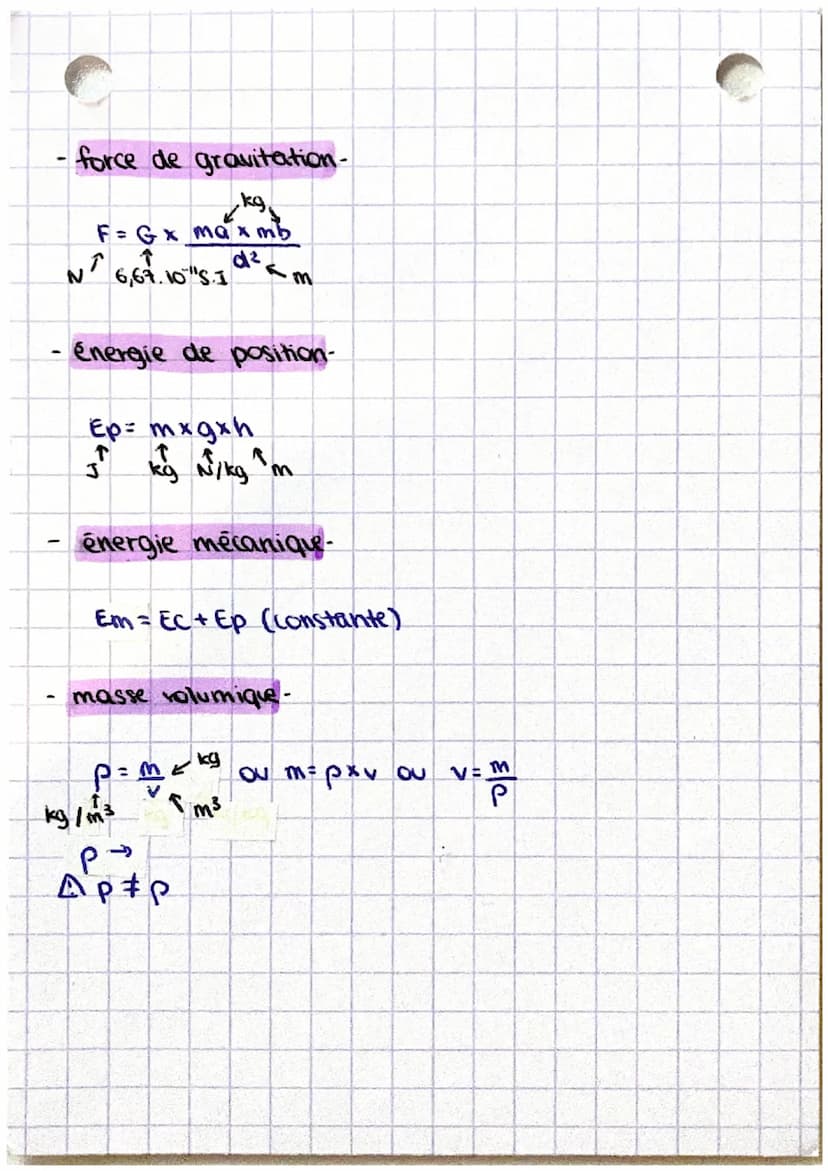 - force de gravitation -
kg
F = G x ma x mb
d²
N 6,67.10⁻¹¹S.I m
- Énergie de position -
Ep = m x g x h
J kg N/kg m
- énergie mécanique -
Em = Ec + Ep (constante)
- masse volumique -
ρ = m/v kg ou m = ρ x v ou v = m/ρ
kg/m³ m³
ρ →
⚠ p ≠ ρ